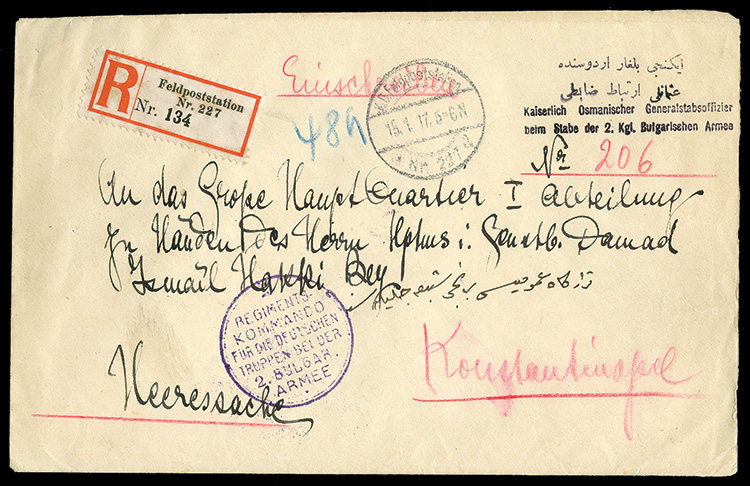 R
Feldpoststation
Nr. 227
Nr. 134
Einschreiben
489
K.D. Feldpoststation
15.1.17. 6-8N
* Nr. 227 a
ایکنجی بلغار اردوسنده
عثمانلی ارتباط ضابطی
Kaiserlich Osmanischer Generalstabsoffizier
beim Stabe der 2. Kgl. Bulgarischen Armee
Nr 206
An das Große Haupt Quartier I Abteilung
zu Händen des Herrn Hptms i. Genstb. Damad
Ismaïl Hakki Bey
REGIMENTS-
KOMMANDO
FÜR DIE DEUTSCHEN
TRUPPEN BEI DER
2. BULGAR.
ARMEE
Konstantinopel
Heeressache